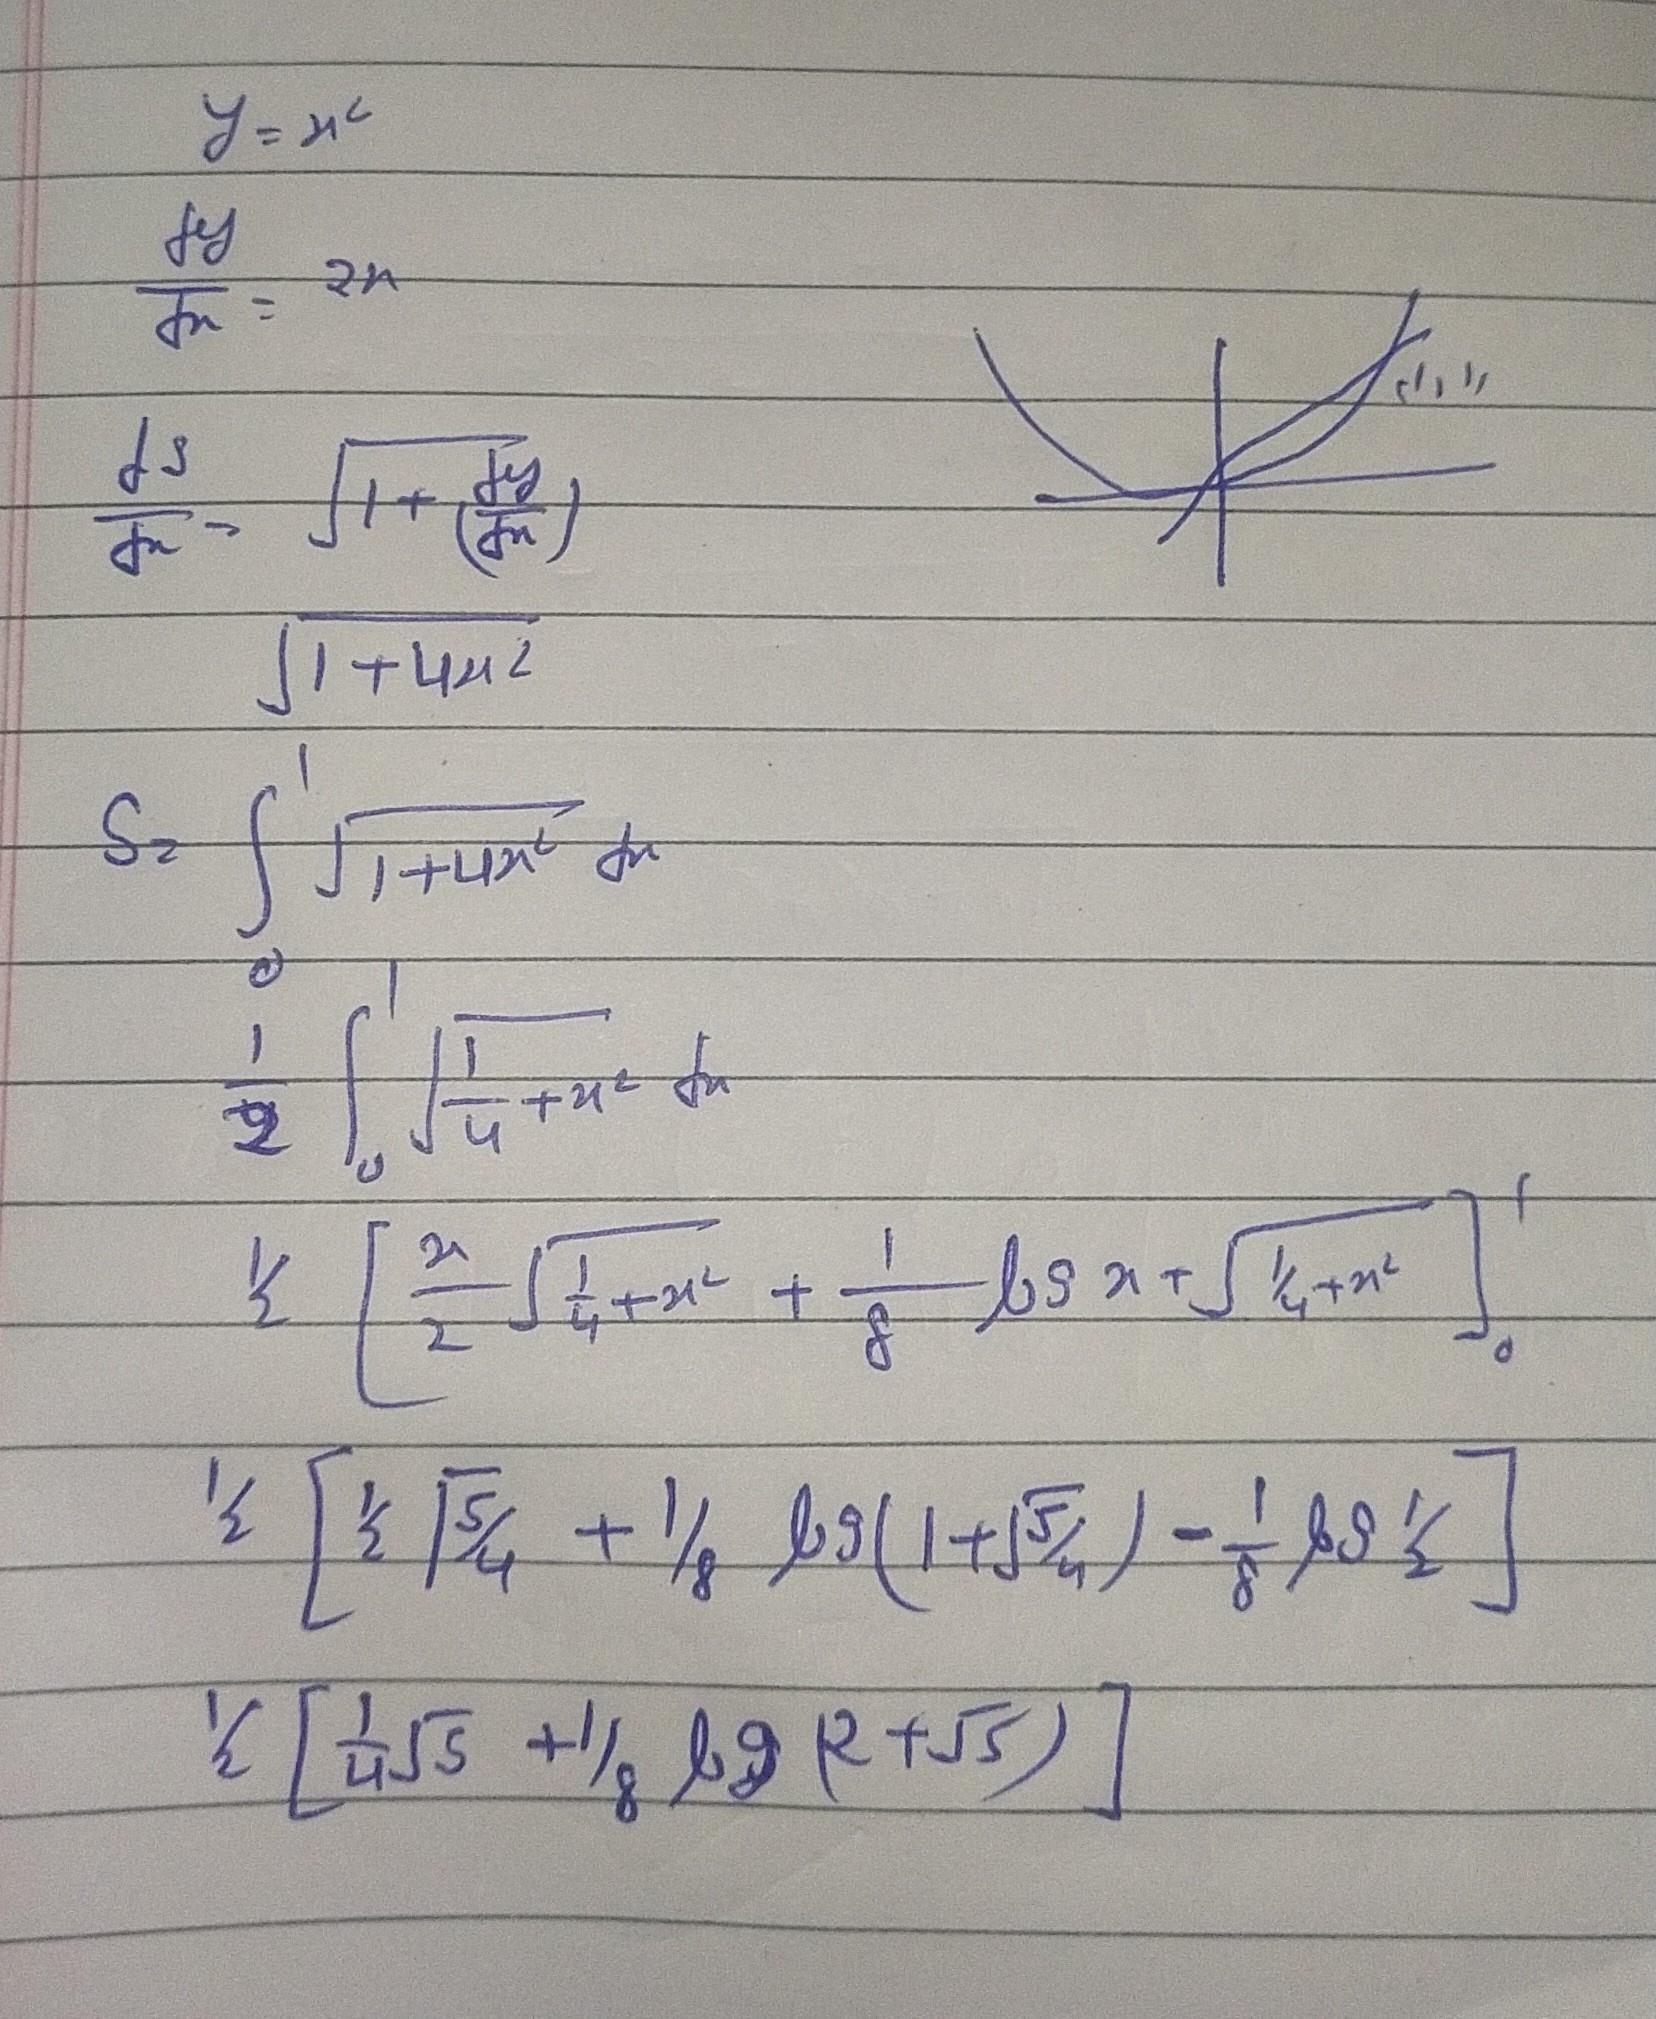 y = x²
dy/dx = 2x
(1, 1)
ds/dx = √1 + (dy/dx)
√1 + 4x²
S = ∫₀¹ √1 + 4x² dx
1/2 ∫₀¹ √1/4 + x² dx
1/2 [ x/2 √1/4 + x² + 1/8 log x + √1/4 + x² ]₀¹
1/2 [ 1/2 √5/4 + 1/8 log(1 + √5/4) - 1/8 log 1/2 ]
1/2 [ 1/4 √5 + 1/8 log (2 + √5) ]